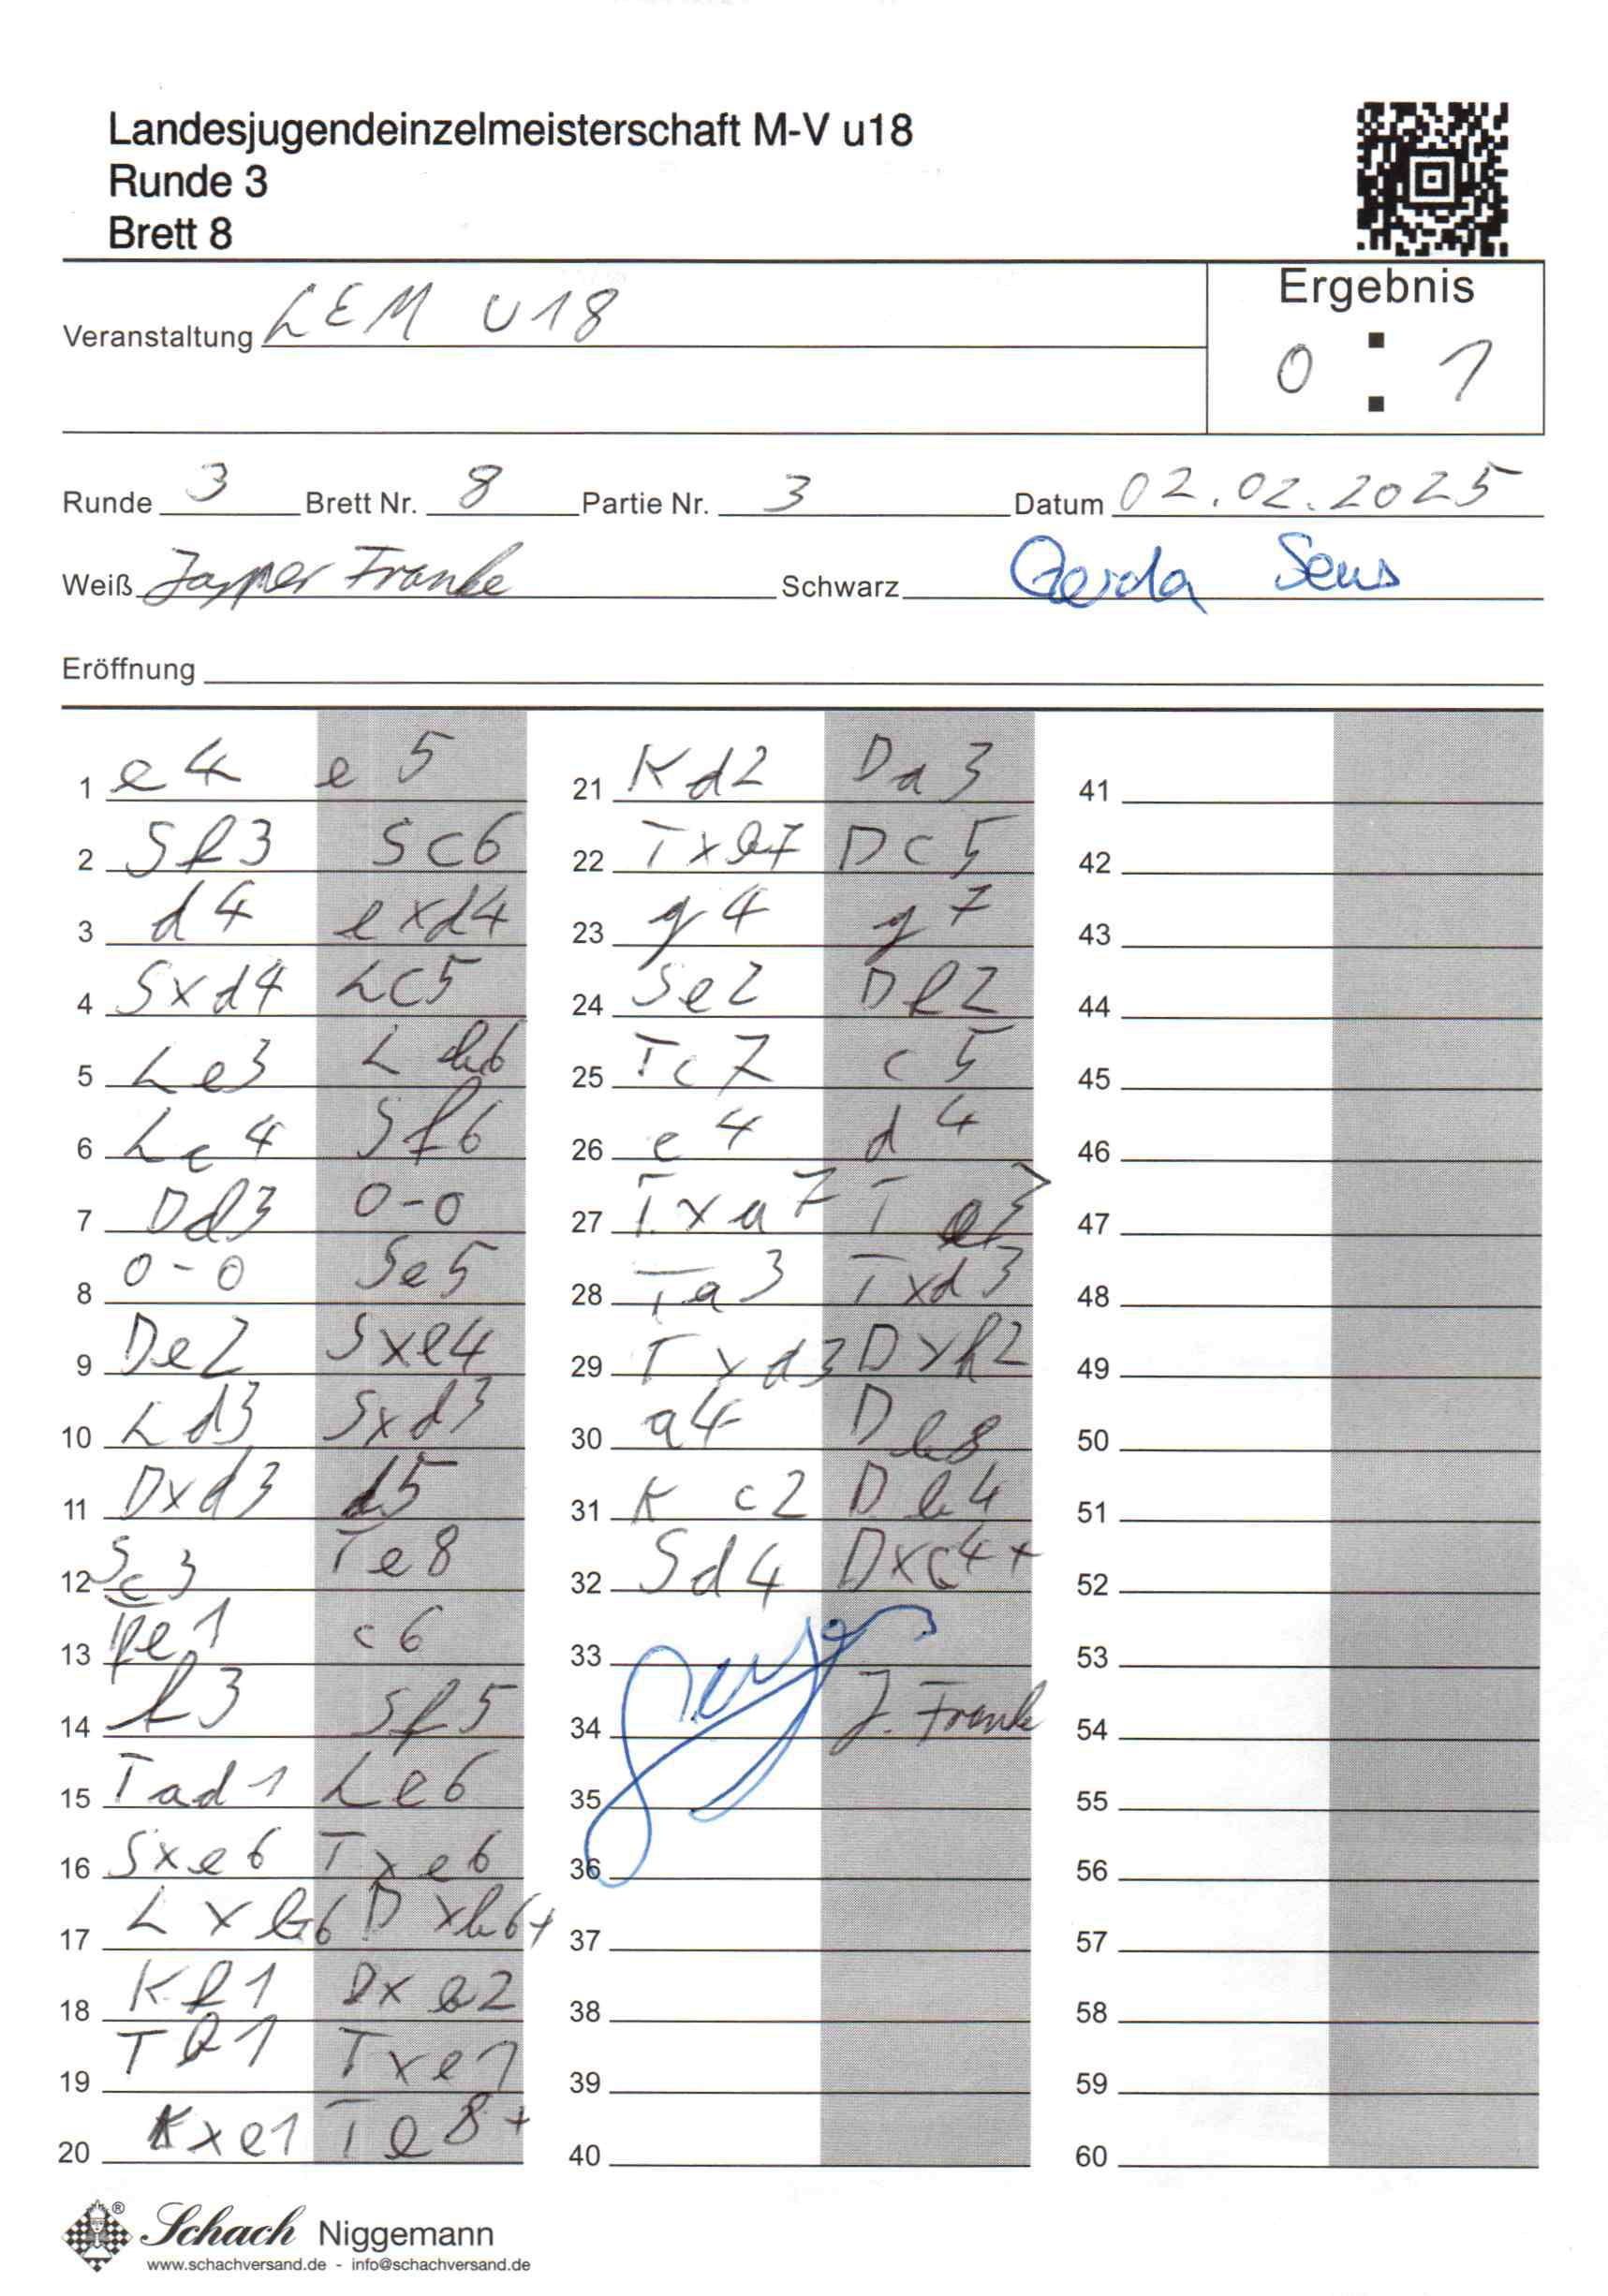 Landesjugendeinzelmeisterschaft M-V u18
Runde 3
Brett 8
Ergebnis
Veranstaltung LEM U18
0 : 1
Runde 3 Brett Nr. 8 Partie Nr. 3 Datum 02.02.2025
Weiß Jasper Franke Schwarz Gerda Sens
Eröffnung
1 e4 e5
2 Sf3 Sc6
3 d4 exd4
4 Sxd4 Lc5
5 Le3 Lb6
6 Lc4 Sf6
7 Dd3 0-0
8 0-0 Se5
9 De2 Sxe4
10 Ld3 Sxd3
11 Dxd3 d5
12 Sc3 Te8
13 e1 c6
14 f3 Sf5
15 Tad1 Le6
16 Sxe6 Txe6
17 Lxb6 Dxb6+
18 Kf1 Dxb2
19 Tb1 Txe1
20 Kxe1 Te8+
21 Kd2 Da3
22 Txb7 Dc5
23 g4 g7
24 Se2 Df2
25 Tc7 c5
26 c4 d4
27 Txa7 Te3
28 Ta3 Txd3
29 Txd3 Dxh2
30 a4 Db8
31 Kc2 Db4
32 Sd4 Dxc4+
33
34 J. Franke
35
36
37
38
39
40
41
42
43
44
45
46
47
48
49
50
51
52
53
54
55
56
57
58
59
60
Schach Niggemann
www.schachversand.de - info@schachversand.de